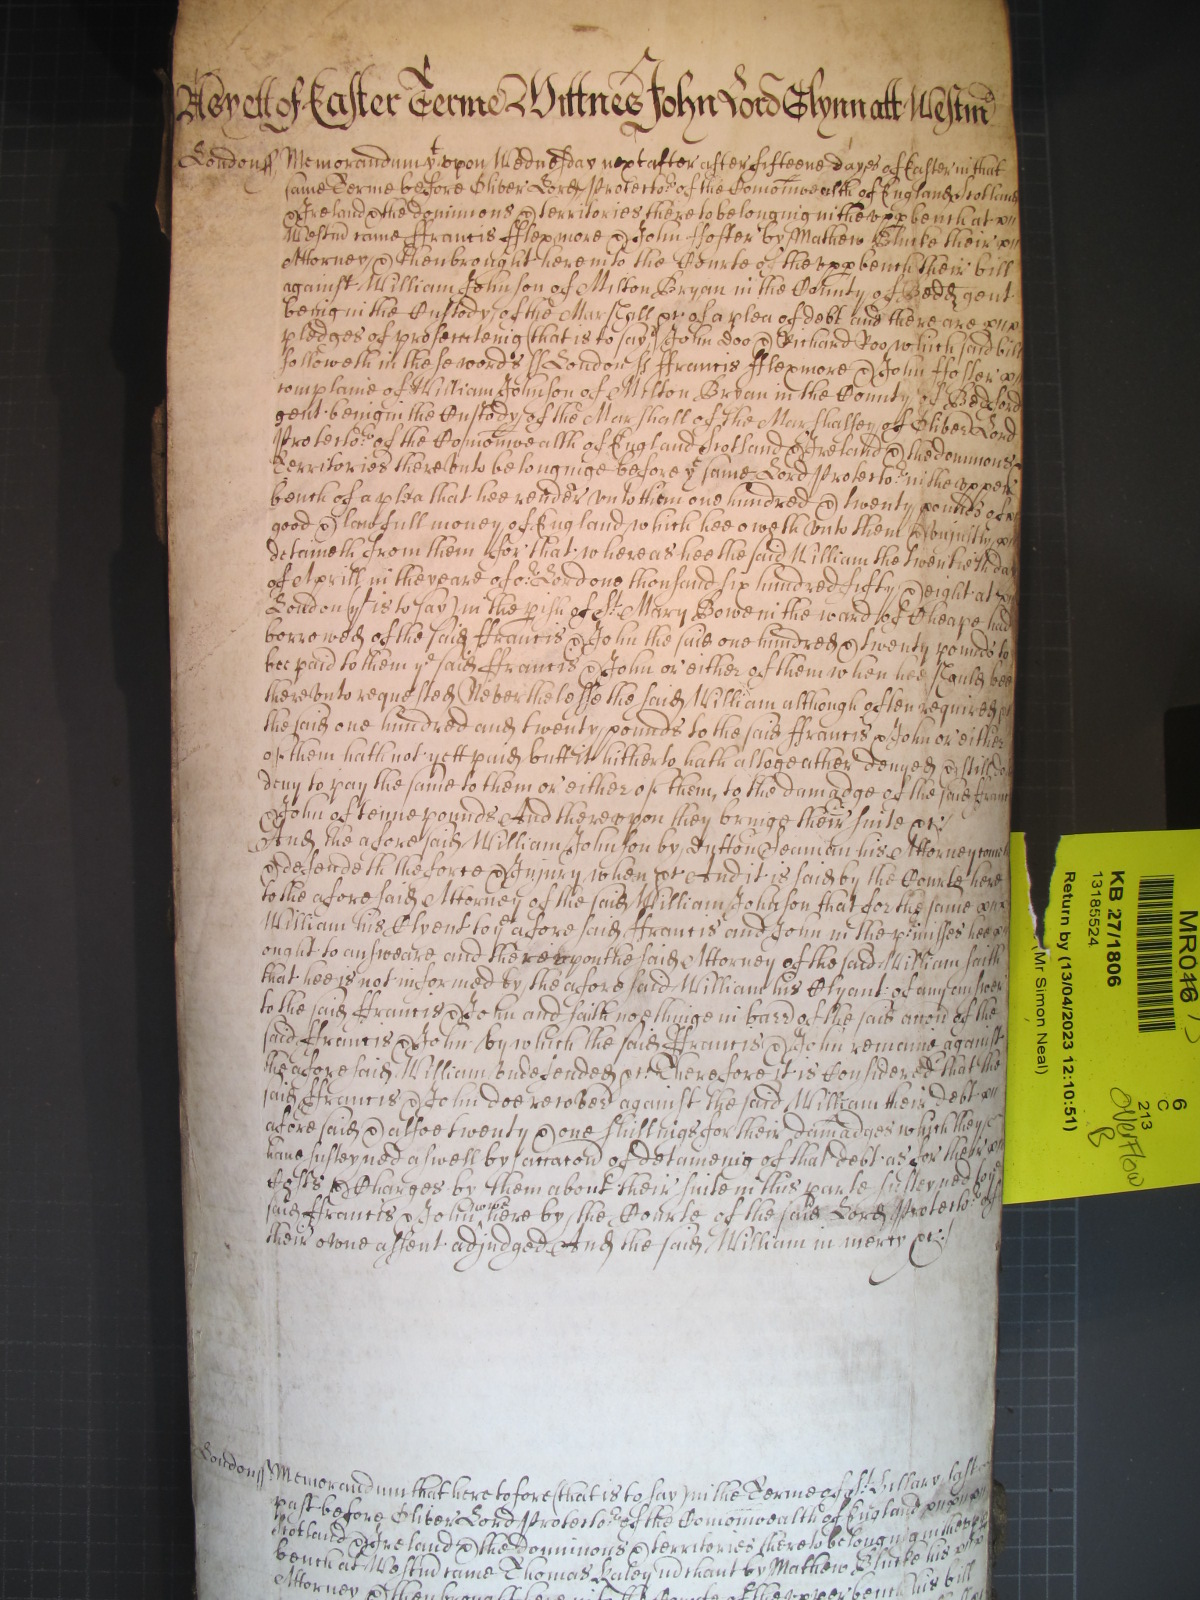 As yett of Easter Terme Wittnes John Lord Glynn att Westmr
London ss Memorandum yt upon Wednesday next after after fifteene dayes of Easter in that
same Terme before Oliver Lord Protector of the Comonwealth of England Scotland
& Ireland & the dominions & territories thereto belonging in the upp bench at
Westmr came Ffrancis Fflexmore & John Ffoster by Mathew Blucke their
Attorney & then brought here into the Courte of the upp bench their bill
against William Johnson of Milton Bryan in the County of Bedd gent
being in the Custody of the Marshall &c of a plea of debt and there are
pledges of prosecuteing (that is to say) John doo & Richard Roo, which said bill
followeth in these words ss London ss Ffrancis Fflexmore & John Ffoster
complaine of William Johnson of Milton Bryan in the County of Bedford
gent being in the Custody of the Marshall of the Marshallsey of Oliver Lord
Protector of the Comonwealth of England Scotland & Ireland & the dominions
Territories thereunto belonginge before ye same Lord Protector in the upper
bench of a plea that hee render unto them one hundred & twenty pounds of
good & lawfull money of England which hee oweth unto them & unjustly
detaineth from them for that whereas hee the said William the twentieth day
of Aprill in the yeare of or Lord one thousand six hundred fifty & eight at
London (yt is to say) in the pish of St Mary Bowe in the ward of Cheape had
borrowed of the said Ffrancis & John the said one hundred & twenty pounds to
bee paid to them ye said Ffrancis & John or either of them when hee should bee
thereunto requested Neverthelesse the said William although often required
the said one hundred and twenty pounds to the said Ffrancis & John or either
of them hath not yett paid butt it hitherto hath altogeather denyed & still doth
deny to pay the same to them or either of them, to the damadge of the said Ffrancis
& John of tenne pounds And thereupon they bringe their suite &c
And the aforesaid William Johnson by Dutton Seaman his Attorney cometh
& defendeth the force & Injury when &c And it is said by the Courte here
to the aforesaid Attorney of the said William Johnson that for the same
William his Clyent to ye aforesaid Ffrancis and John in the pmisses hee
ought to answeare and thereupon the said Attorney of the said William saith
that hee is not informed by the aforesaid William his Clyant of any answer
to the said Ffrancis & John and saith noethinge in barr of the said accon of the
said Ffrancis & John by which the said Ffrancis & John remaine against
the aforesaid William undefended &c Therefore it is Considered that the
said Ffrancis & John doe recover against the said William their debt
aforesaid & alsoe twenty & one shillings for their damadges which they
have susteyned aswell by accacon of detaineing of that debt as for their
Costs & Charges by them about their suite in this parte susteyned to ye
said Ffrancis & John wth here by the Courte of the said Lord Protector of
their owne assent adjudged And the said William in mercy &c
London ss Memorandum that heretofore (that is to say) in the Terme of St Hillary last
past before Oliver Lord Protector of the Comonwealth of England
Scotland & Ireland & the dominions & territories thereto belonging in the upp
bench at Westmr came Thomas Caley mchant by Mathew Blucke his
Attorney & then brought here into the Courte of the upper bench his bill
MR046
KB 27/1806
13185524
Return by (13/04/2023 12:10:51)
(Mr Simon Neal)
6
C
213
Overflow
B